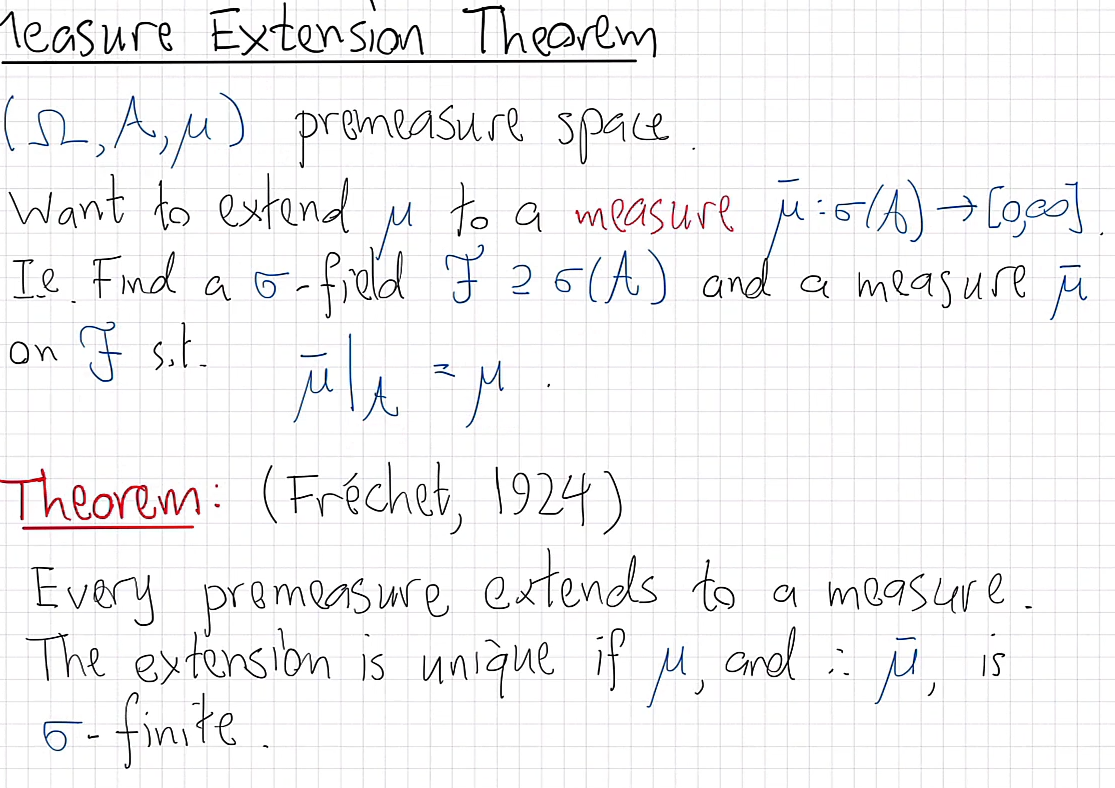 Measure Extension Theorem
(Ω, A, μ) premeasure space.
Want to extend μ to a measure μ̄ : σ(A) → [0,∞].
I.e. Find a σ-field F ⊇ σ(A) and a measure μ̄
on F s.t. μ̄|A = μ.
Theorem: (Fréchet, 1924)
Every premeasure extends to a measure.
The extension is unique if μ, and ∴ μ̄, is
σ-finite.